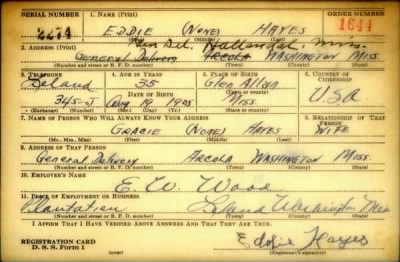 SERIAL NUMBER 1. NAME (Print) ORDER NUMBER
2274 EDDIE (NONE) HAYES 1644
(First) (Middle) (Last)
2. ADDRESS (Print) Gen Del. Hollandale, Miss.
General Delivery ARCOLA WASHINGTON MISS.
(Number and street or R. F. D. number) (Town) (County) (State)
3. TELEPHONE 4. AGE IN YEARS 5. PLACE OF BIRTH 6. COUNTRY OF CITIZENSHIP
Leland 35 Glen Allan
DATE OF BIRTH (Town or county)
345-J Aug 19 1905 Miss. USA
(Exchange) (Number) (Mo.) (Day) (Yr.) (State or country)
7. NAME OF PERSON WHO WILL ALWAYS KNOW YOUR ADDRESS 8. RELATIONSHIP OF THAT PERSON
GRACIE (NONE) HAYES WIFE
(Mr., Mrs., Miss) (First) (Middle) (Last)
9. ADDRESS OF THAT PERSON
General Delivery ARCOLA WASHINGTON MISS.
(Number and street or R. F. D. number) (Town) (County) (State)
10. EMPLOYER'S NAME
E. W. Wood
11. PLACE OF EMPLOYMENT OR BUSINESS
Plantation Leland Washington Miss
(Number and street or R. F. D. number) (Town) (County) (State)
I AFFIRM THAT I HAVE VERIFIED ABOVE ANSWERS AND THAT THEY ARE TRUE.
REGISTRATION CARD
D. S. S. Form 1 Eddie Hayes
(Registrant's signature)